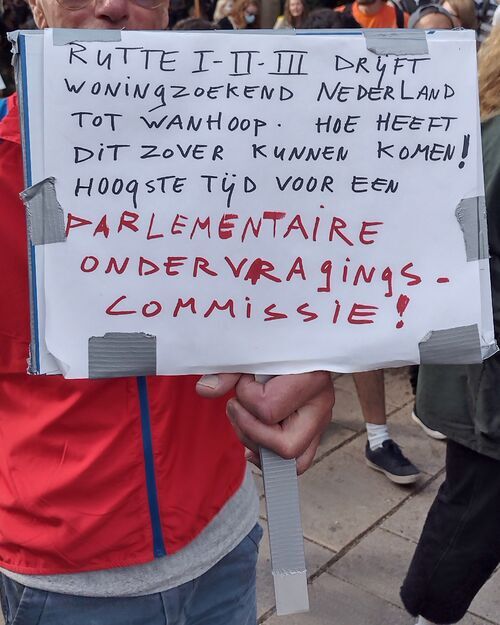 RUTTE I-II-III DRIJFT
WONINGZOEKEND NEDERLAND
TOT WANHOOP. HOE HEEFT
DIT ZOVER KUNNEN KOMEN!
HOOGSTE TIJD VOOR EEN
PARLEMENTAIRE
ONDERVRAGINGS-
COMMISSIE!